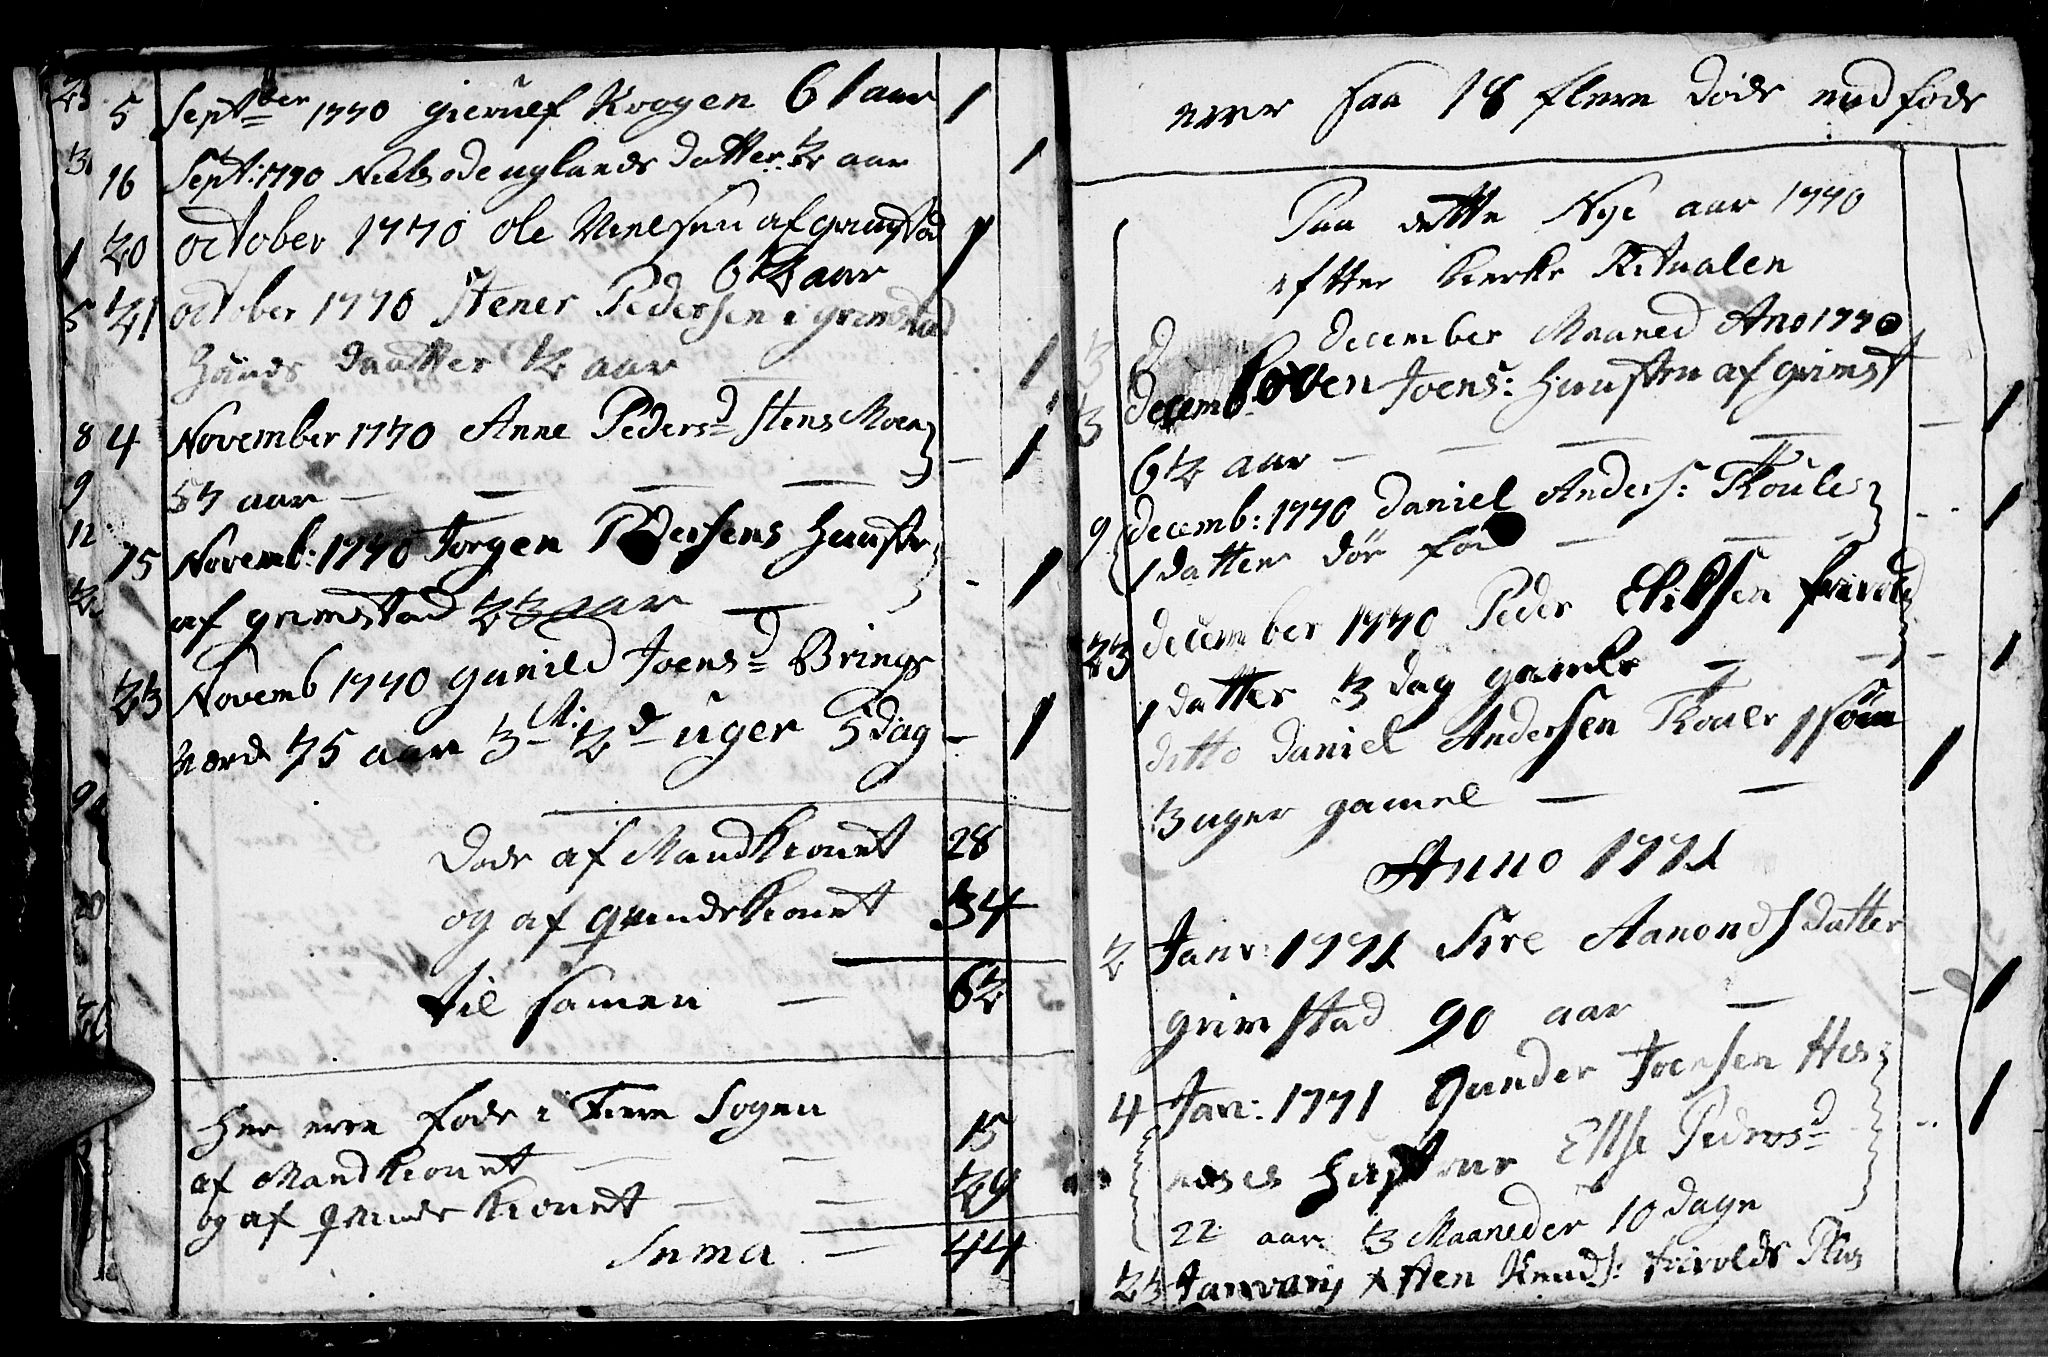 5 Septber 1770 gierulf Krogen 61 aar 1
16 Sept: 1770 Niels odeuglands datter 2 aar 1
20 october 1770 ole Nielsen af grimstad 1
62 aar
21 october 1770 Stener Pedersen i grimstad
Hands daatter 2 aar 1
4 November 1770 Anne Pedersd Stens Moen 1
57 aar
15 Novemb: 1770 Jorgen Pedersens Hustr
af grimstad 23 aar 1
23 Novemb 1770 gunild Joensd Brings
værd 75 aar 3 M: 2 uger 5 dag 1
Døde af Mandkionet 28
og af qvindekionet 34
til samen 62
Her ere føde i Fiere Sogen
af Mandkionet 15
og af qvindekionet 29
Suma 44
erer saa 18 flere døde end føde
Paa dette Nye aar 1770
efter Kierke Ritualen
december Maaned Ano 1770
3 decemb Joens: Hustru af grimst
62 aar 1
9 decemb: 1770 daniel Anders: Roule
1 datter dør fød 1
23 december 1770 Peder
1 datter 3 dag gamle 1
ditto daniel Andersen Rouler 1 søn
3 uger gamel 1
Anno 1771
2 Janv: 1771 Sire Aanonds datter
grimstad 90 aar 1
4 Jan: 1771 Gunder Joensen Hes
neses Hustrue Ellse Pedersd 1
22 aar 3 Maaneder 10 dage
23 Januarij Sten Knuds: